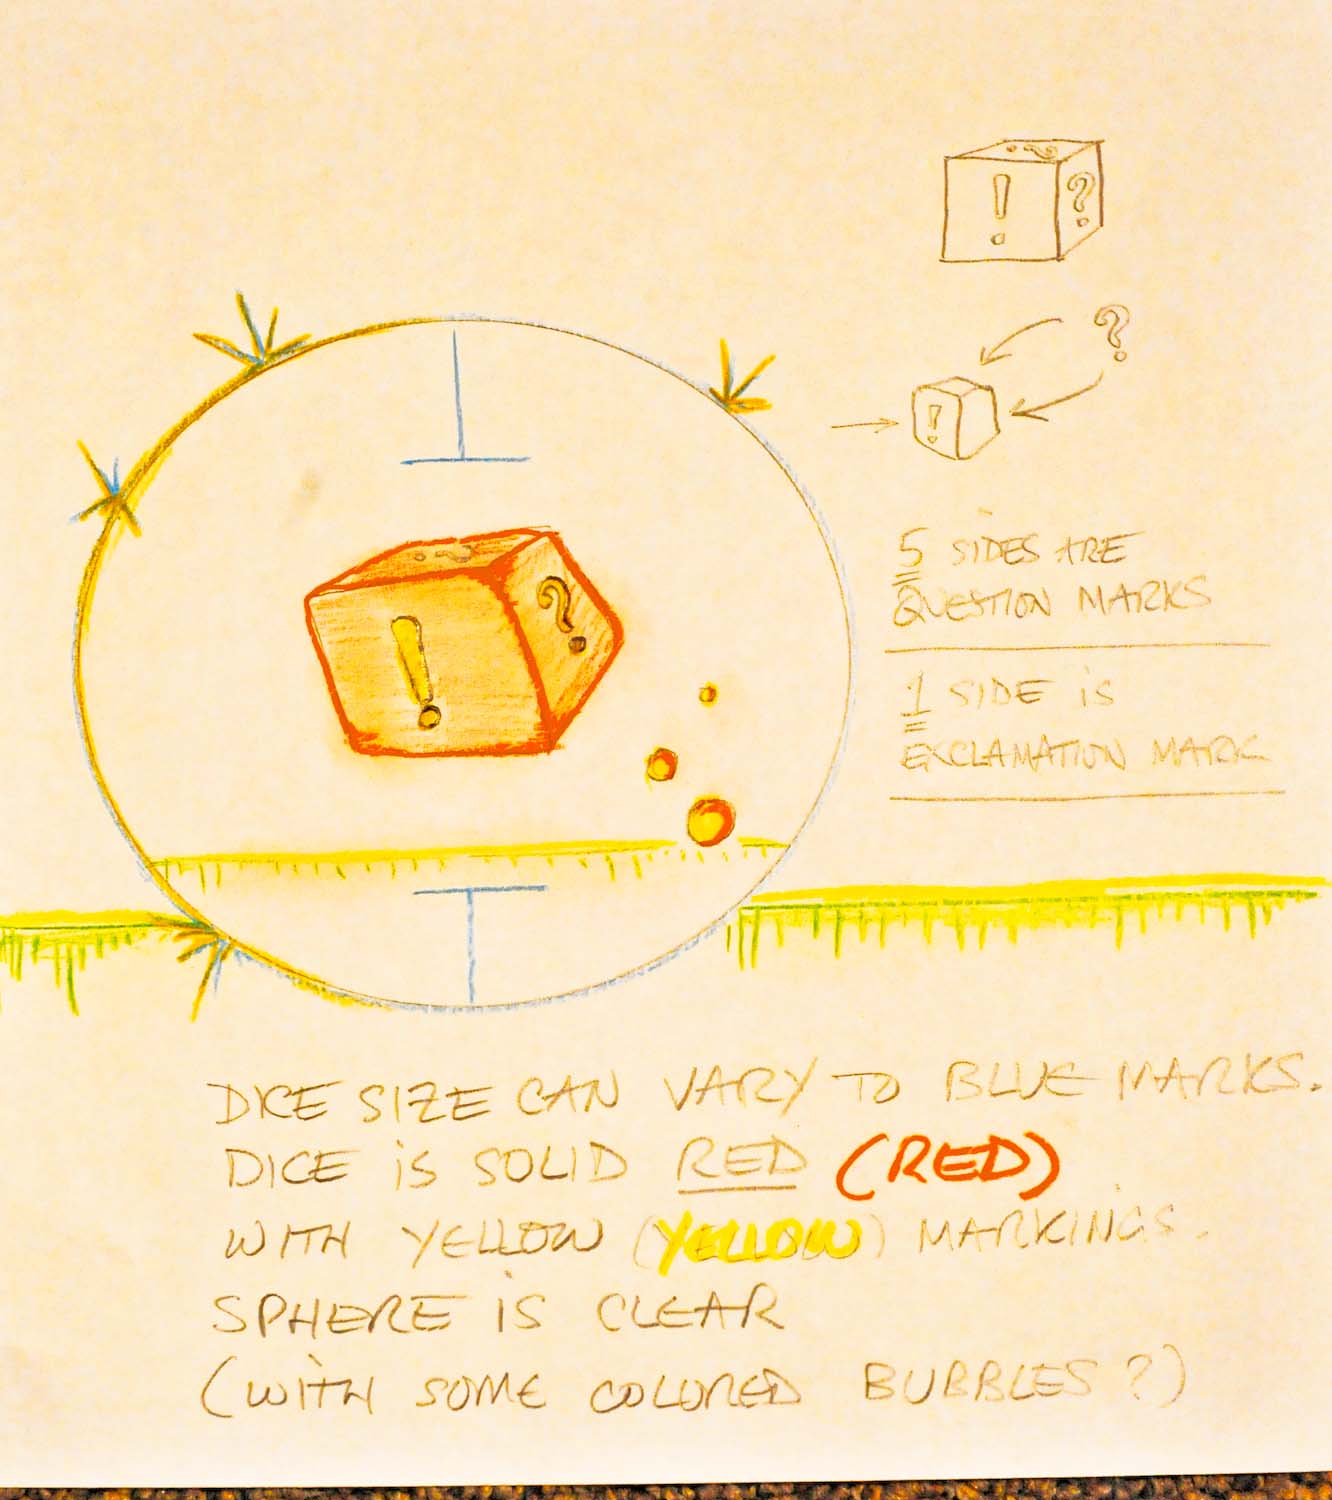 ! ?
?
!
?
!
?
?
5 SIDES ARE
QUESTION MARKS
1 SIDE iS
EXCLAMATION MARK
DICE SIZE CAN VARY TO BLUE MARKS.
DICE iS SOLID RED (RED)
WITH YELLOW (YELLOW) MARKINGS.
SPHERE iS CLEAR
(WITH SOME COLORED BUBBLES?)